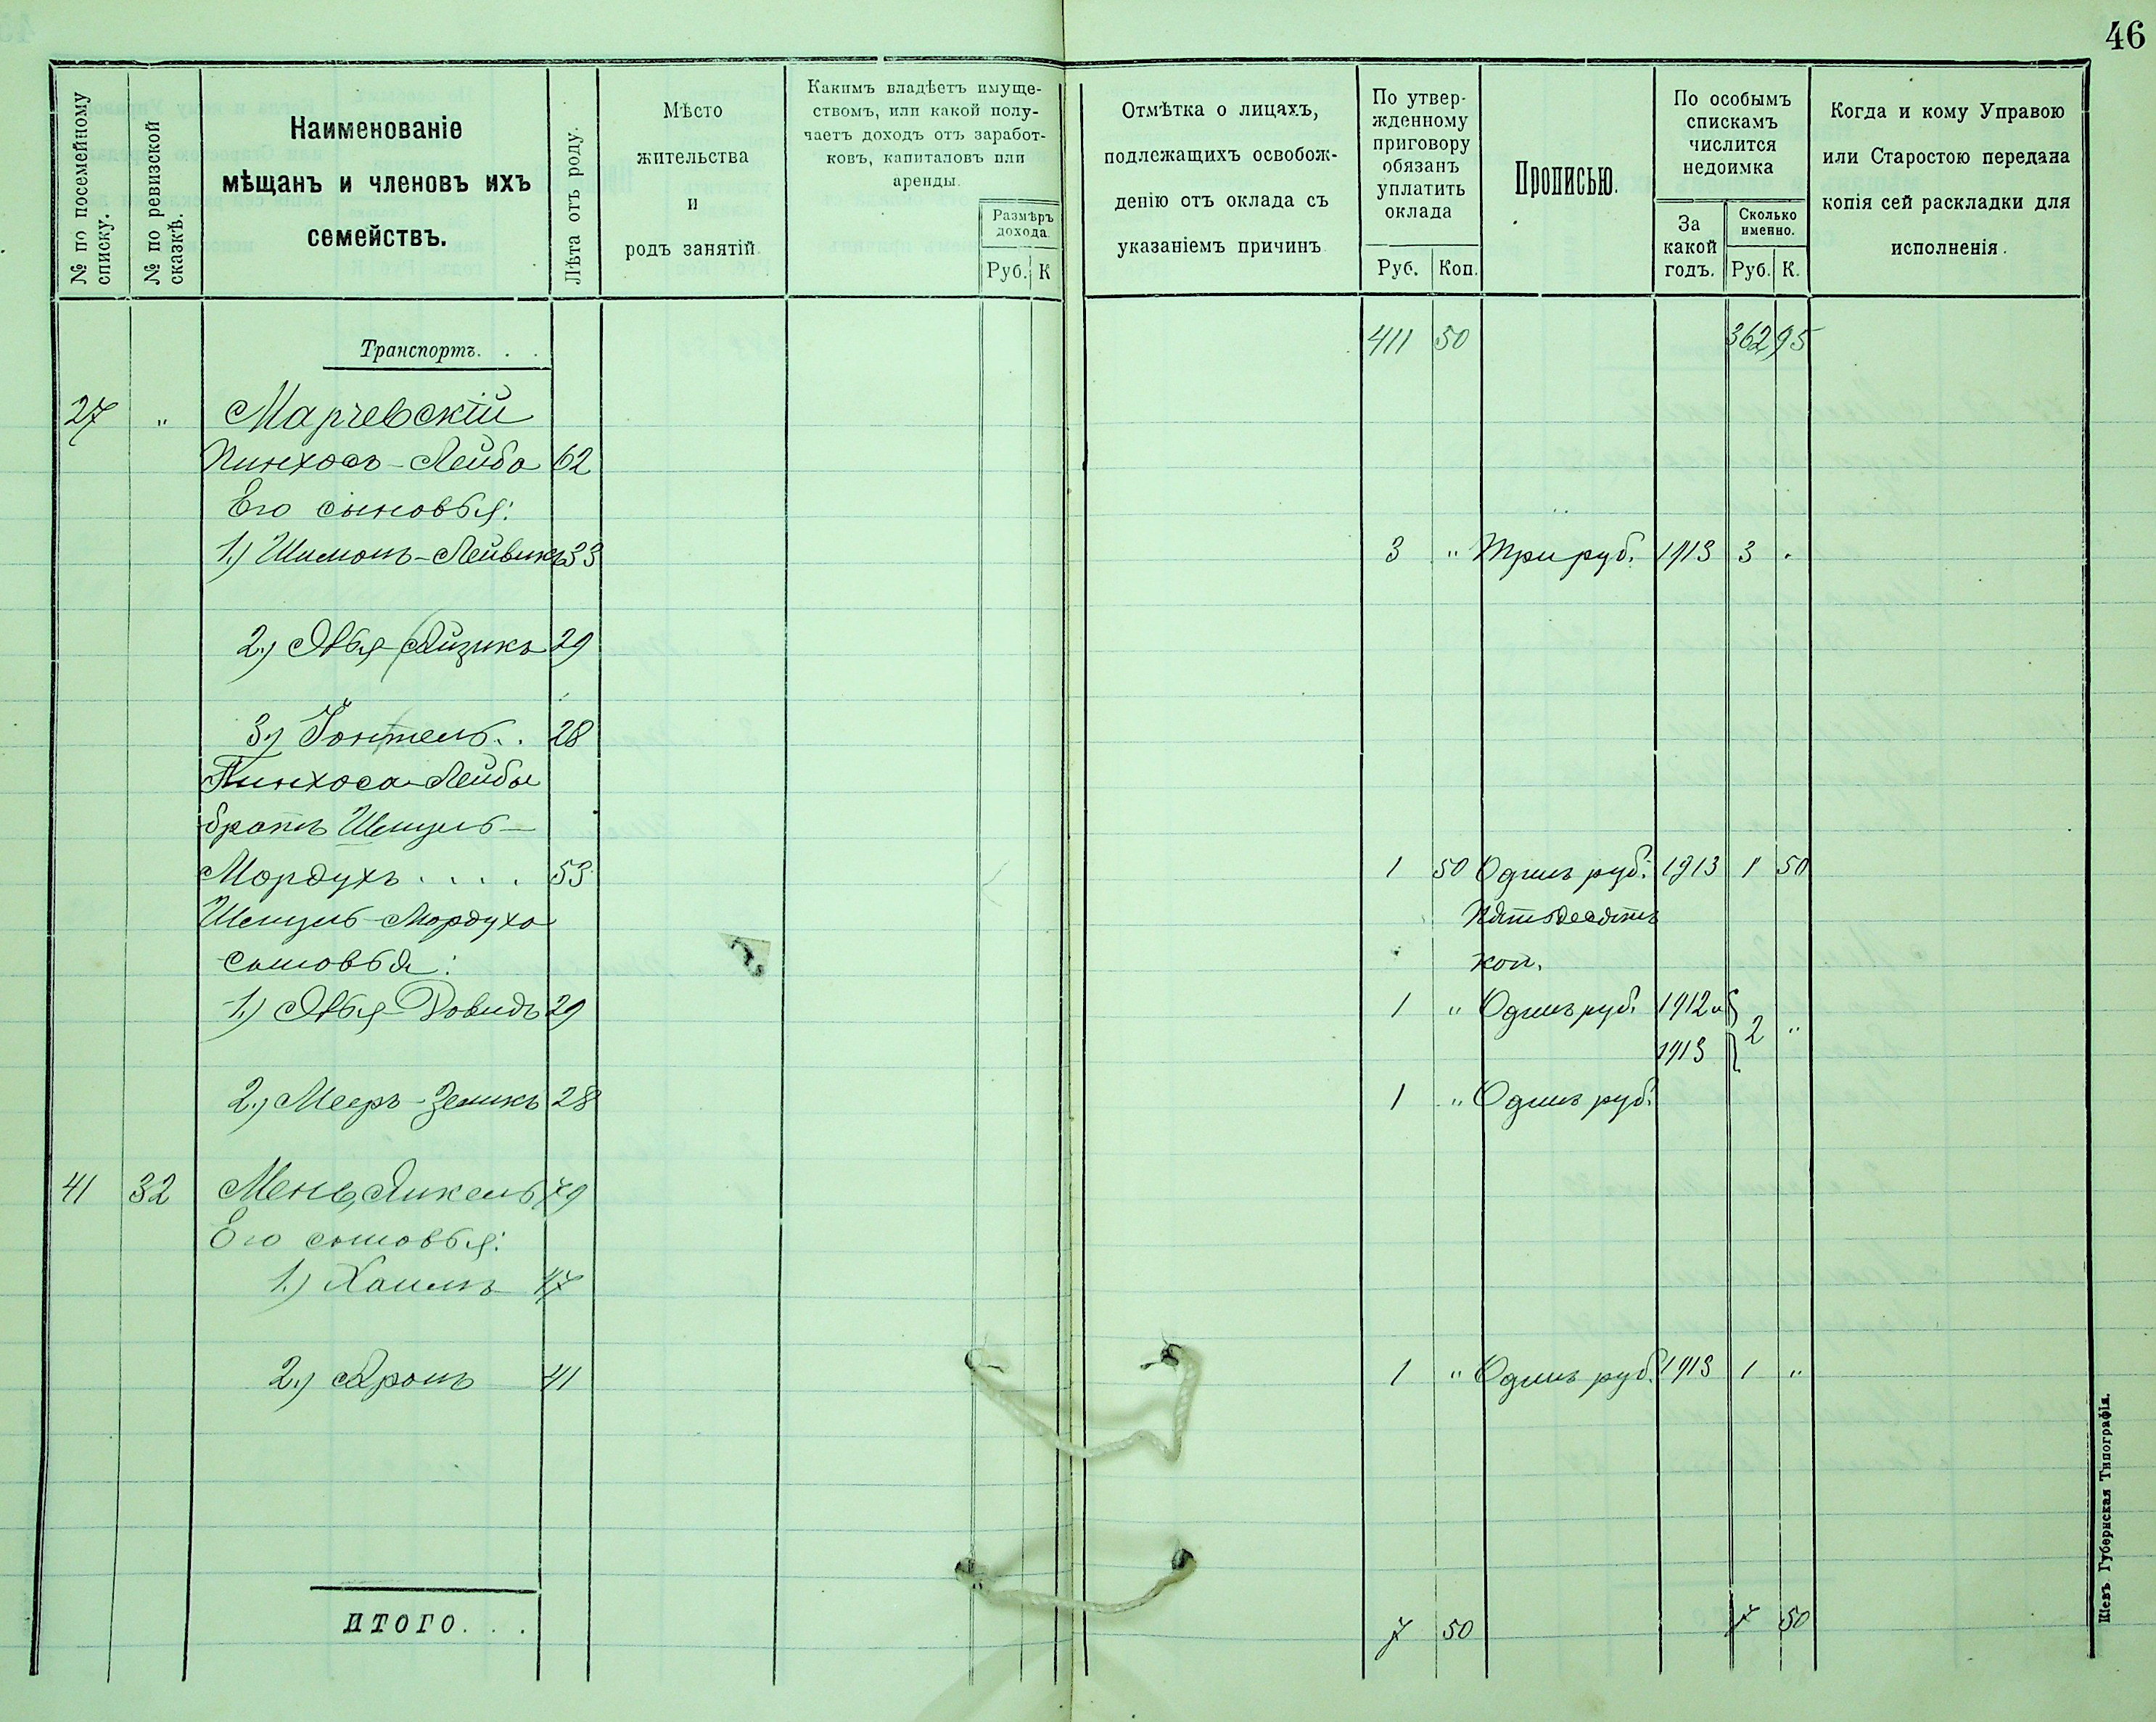 46
№ по посемейному списку.
№ по ревизской сказкѣ.
Наименованіе
мѣщанъ и членовъ ихъ
семействъ.
Лѣта отъ роду.
Мѣсто
жительства
и
родъ занятій.
Какимъ владѣетъ имуще-
ствомъ, или какой полу-
чаетъ доходъ отъ заработ-
ковъ, капиталовъ или
аренды.
Размѣръ
дохода.
Руб. К
Отмѣтка о лицахъ,
подлежащихъ освобож-
денію отъ оклада съ
указаніемъ причинъ
По утвер-
жденному
приговору
обязанъ
уплатить
оклада
Руб. Коп.
Прописью.
По особымъ
спискамъ
числится
недоимка
За
какой
годъ.
Сколько
именно.
Руб. К.
Когда и кому Управою
или Старостою передана
копія сей раскладки для
исполненія.
Транспортъ. . . 411 50 362 95
27 " Марчевскій
Пинхосъ-Лейба 62
Его сыновья:
1.) Шимонъ-Лейвикъ 33 3 " Три руб. 1913 3 "
2.) Авья-Айзикъ 29
3.) 28
Пинхоса-Лейбы
братъ
Мордухъ . . . . 53 1 50 Одинъ руб. 1913 1 50
Мордуха Пятьдесятъ
сыновья: коп.
1.) Авья-Довидъ 29 1 " Одинъ руб. 1912 и
1913 2 "
2.) Мееръ-Зеликъ 28 1 " Одинъ руб.
41 32 Мень, Янкель 79
Его сыновья:
1.) Хаимъ 47
2.) Аронъ 41 1 " Одинъ руб. 1913 1 "
ИТОГО. . . 7 50 7 50
Кіевъ. Губернская Типографія.